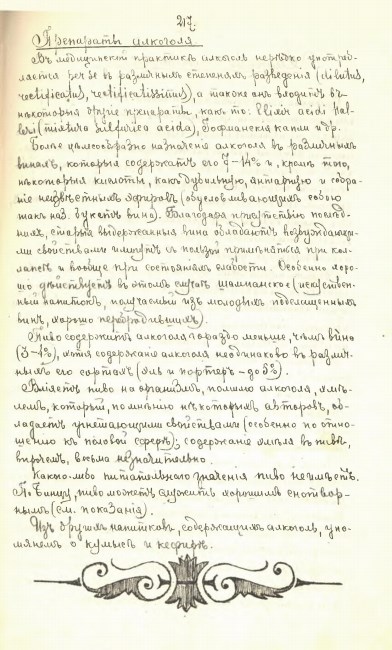 217.
Препараты алкоголя
Въ медицинской практикѣ алкоголь нерѣдко употреб-
ляется per se въ различныхъ степеняхъ разведенія (dilutus,
rectificatus, rectificatissimus), а также онъ входитъ въ
нѣкоторые другіе препараты, какъ то: Elixir acidi Hal-
leri (mixtura sulfurica acida), Гофманскія капли и др.
Болѣе цѣлесообразно назначеніе алкоголя въ различныхъ
винахъ, которыя содержатъ его 7-14% и, кромѣ того,
нѣкоторыя кислоты, какъ дубильную, янтарную и собра-
ніе неизвѣстныхъ эфировъ (обусловливающихъ собою
такъ наз. букетъ вина). Благодаря присутствію послѣд-
нихъ, старыя выдержанныя вина обладаютъ возбуждающи-
ми свойствами и могутъ съ пользой примѣняться при кол-
лапсѣ и вообще при состояніяхъ слабости. Особенно хоро-
шо дѣйствуетъ въ этомъ случаѣ шампанское (искусствен-
ный напитокъ, получаемый изъ молодыхъ подслащенныхъ
винъ, хорошо перебродившихъ).
Пиво содержитъ алкоголя гораздо меньше, чѣмъ вино
(3-4%), хотя содержаніе алкоголя неодинаково въ различ-
ныхъ его сортахъ (эль и портеръ - до 8%).
Вліяетъ пиво на организмъ, помимо алкоголя, хмѣ-
лемъ, который, по мнѣнію нѣкоторыхъ авторовъ, об-
ладаетъ угнетающими свойствами (особенно по отно-
шенію къ половой сферѣ); содержаніе хмѣля въ пивѣ,
впрочемъ, весьма незначительно.
Какого-либо питательнаго значенія пиво не имѣетъ.
По Бинцу, пиво можетъ служить хорошимъ снотвор-
нымъ (см. показанія).
Изъ другихъ напитковъ, содержащихъ алкоголь, упо-
мянемъ о кумысѣ и кефирѣ.